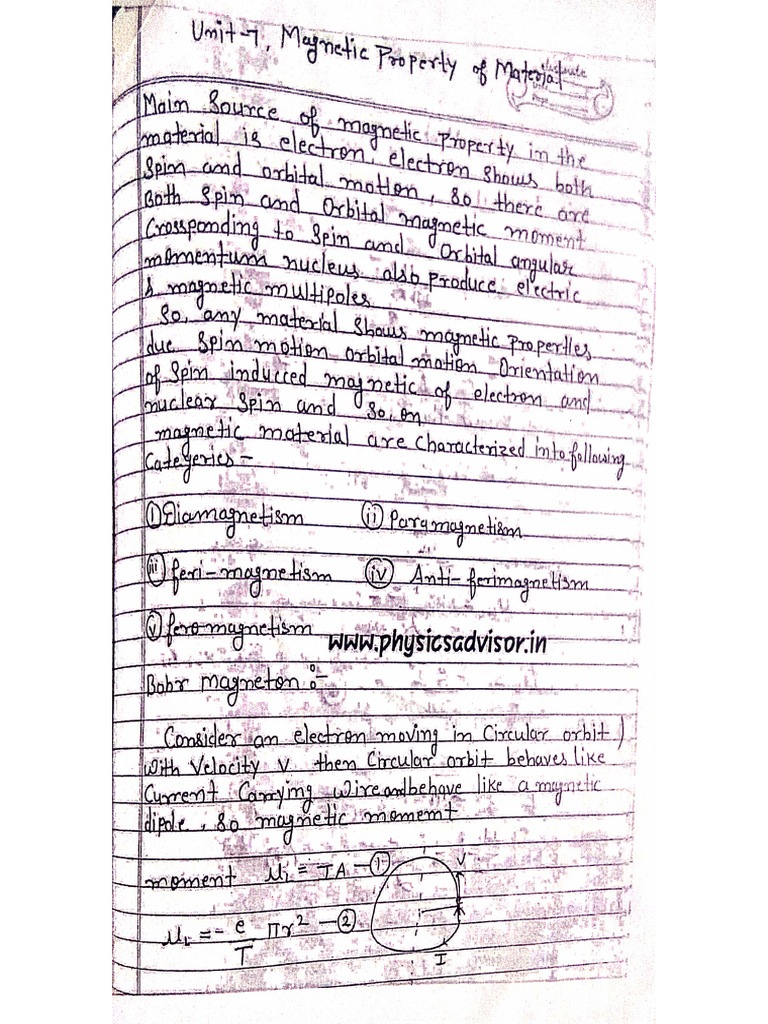 Unit-7, Magnetic Property of Material
Main Source of magnetic Property in the
material is electron, electron shows both
Spin and orbital motion, so there are
Both Spin and Orbital magnetic moment
Crossponding to Spin and Orbital angular
momentum nucleus also produce electric
& magnetic multipoles
So, any material shows magnetic Properties
due Spin motion orbital motion Orientation
of Spin induced magnetic of electron and
nuclear Spin and So, on
magnetic material are Characterized into following
Categeries -
(i) Diamagnetism (ii) Paramagnetism
(iii) feri-magnetism (iv) Anti-ferimagnetism
(v) feromagnetism www.physicsadvisor.in
Bohr magneton :-
Consider an electron moving in Circular orbit
with Velocity v then Circular orbit behaves like
Current Carrying wire and behave like a magnetic
dipole, So magnetic moment
moment μ = IA - (1) V
μ = - e/T πr² - (2)
I